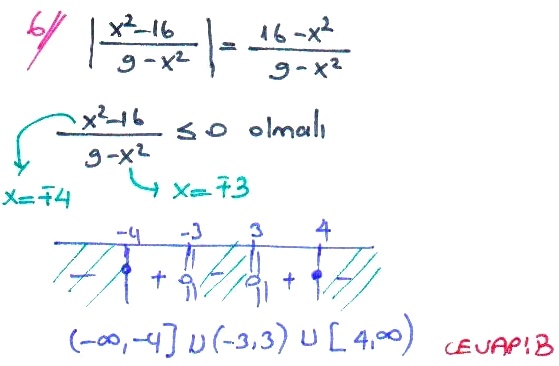 6/ |x²-16 / 9-x²| = 16-x² / 9-x²
x²-16 / 9-x² ≤ 0 olmalı
x=∓4 x=∓3
-4 -3 3 4
- + - + -
(-∞,-4] ∪ (-3,3) ∪ [4,∞) CEVAP:B